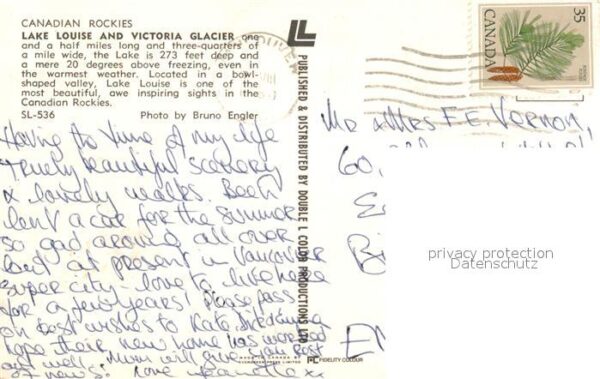 CANADIAN ROCKIES
LAKE LOUISE AND VICTORIA GLACIER one
and a half miles long and three-quarters of
a mile wide, the Lake is 273 feet deep and
a mere 20 degrees above freezing, even in
the warmest weather. Located in a bowl-
shaped valley, Lake Louise is one of the
most beautiful, awe inspiring sights in the
Canadian Rockies.
SL-536 Photo by Bruno Engler
Having the time of my life
truely beautiful scenery
& lovely walks. Been
lent a car for the summer
so gad around all over
but at present in Vancover
super city - love to live here
for a few years! Please pass
on best wishes to Kate
hope their new home has worked
out well. Mum will give you rest
of news! love
PUBLISHED & DISTRIBUTED BY DOUBLE L COLOR PRODUCTIONS LTD.
MADE IN CANADA BY
EVERGREEN PRESS LIMITED
FIDELITY COLOUR
CANADA
35
Mr & Mrs F E Vernon,
60,
privacy protection
Datenschutz